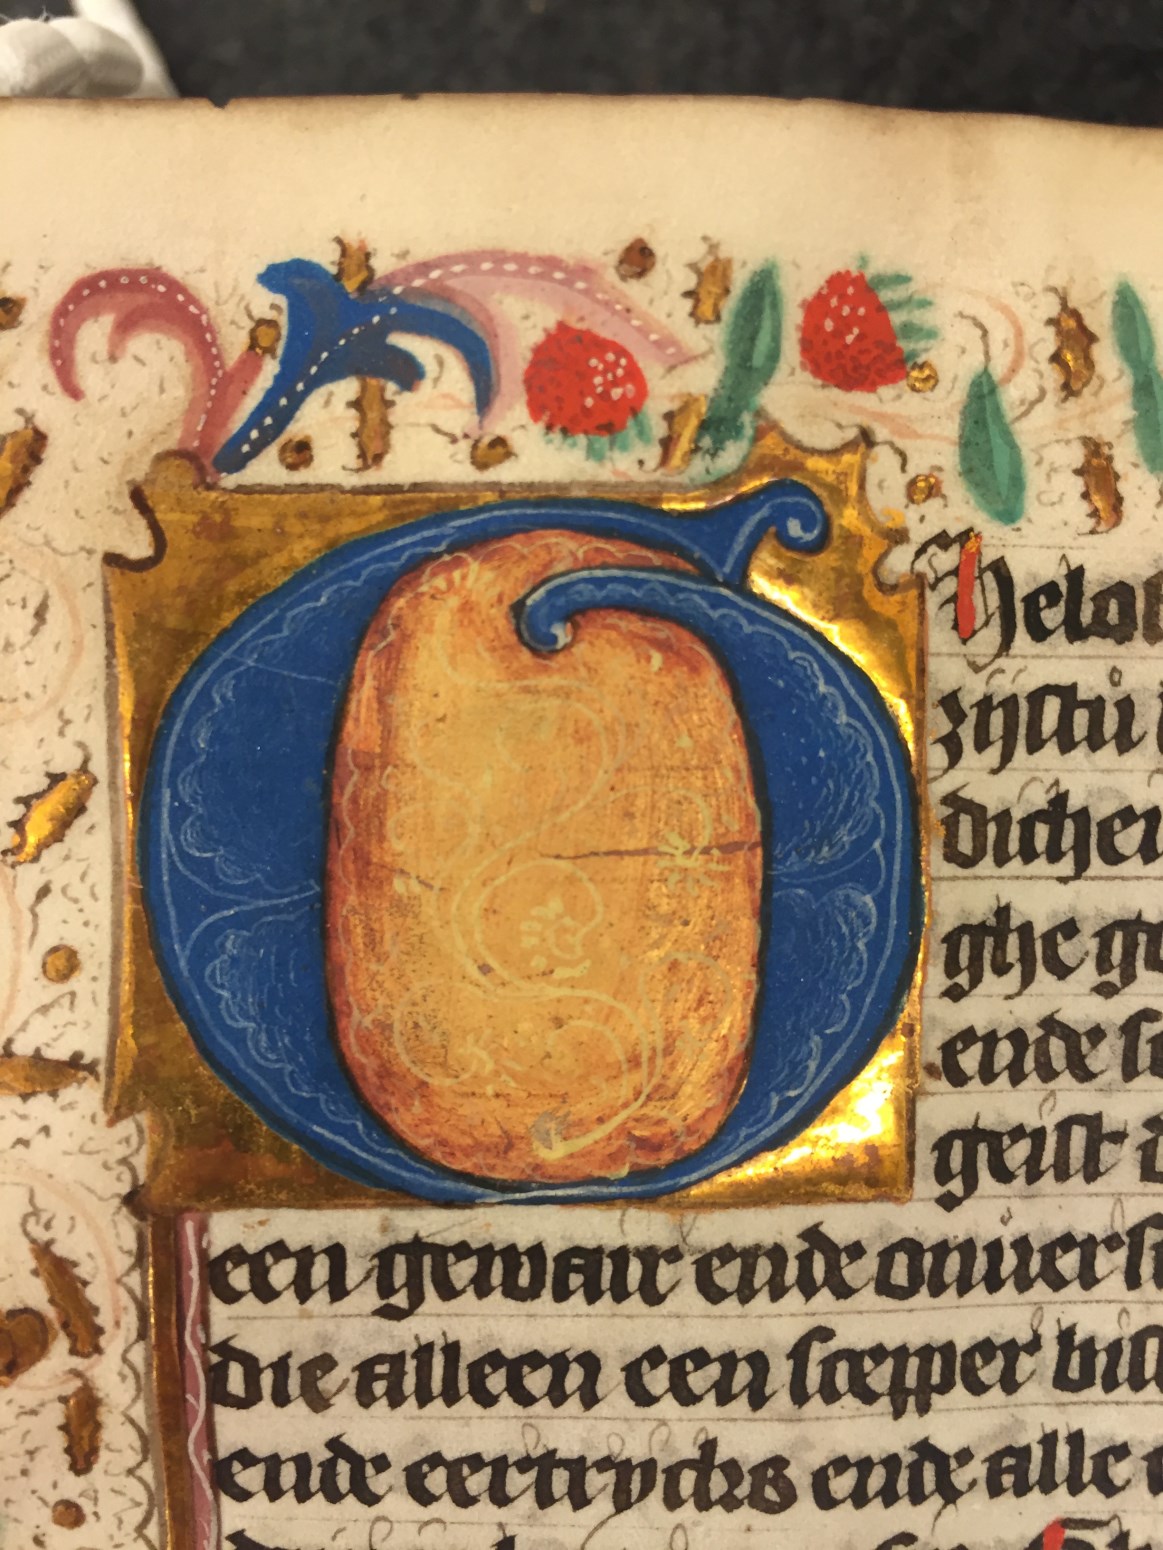 Ghelof
zijstu
dichei
ghe ge
ende
geist
een gewair ende
die alleen een scepper bist
ende eertrycks ende alle